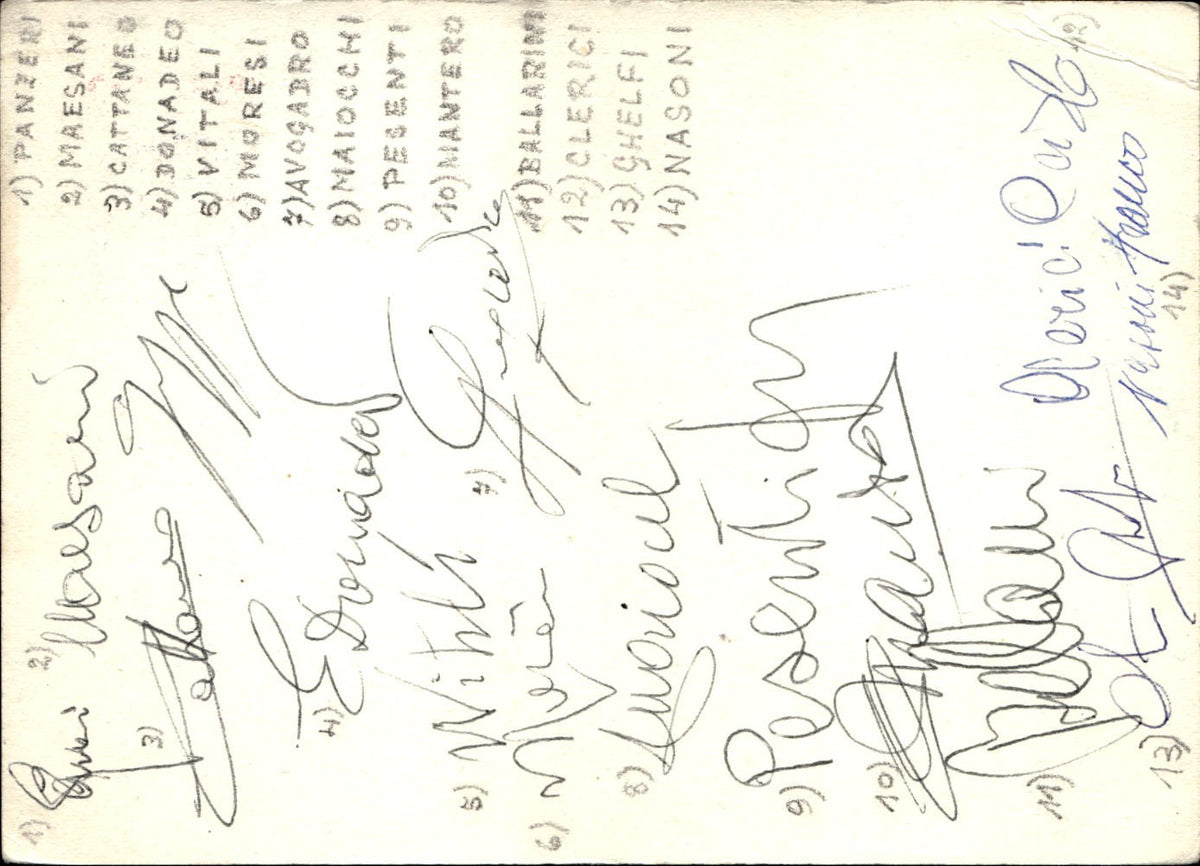 1) PANZERI
2) MAESANI
3) CATTANEO
4) DONADEO
5) VITALI
6) MORESI
7) AVOGADRO
8) MAIOCCHI
9) PESENTI
10) MANTERO
11) BALLARINI
12) CLERICI
13) GHELFI
14) NASONI
1)
2) Maesani
3) Cattaneo
4) E Donadeo
5) Vitali
6)
7)
8)
9) Pesenti
10)
11)
12) Clerici Carlo
13)
14) Nasoni Franco